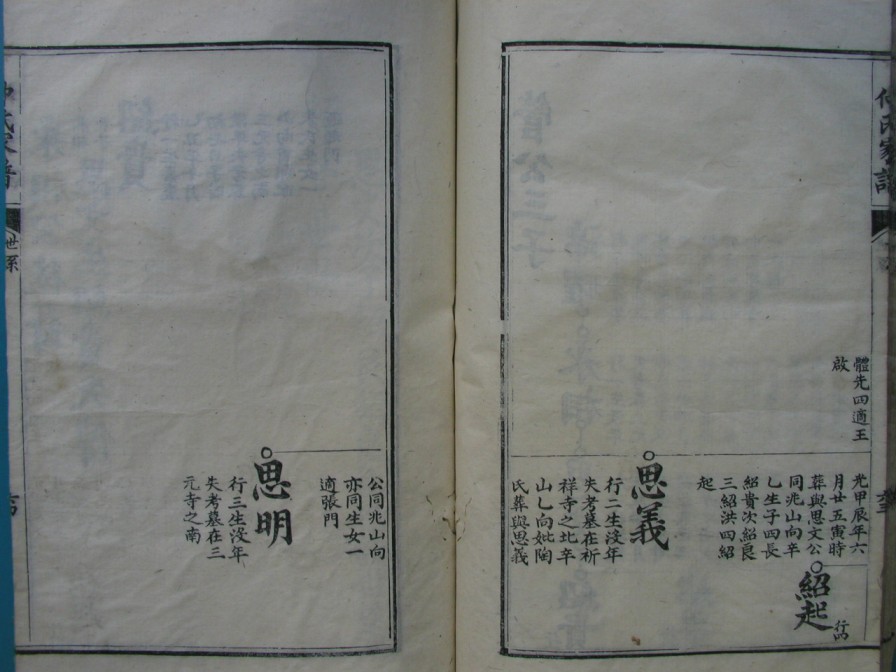 體先四適王
啟
光甲辰年六
月廿五寅時
葬與思文公
同兆山向辛
乚生子四長
紹貴次紹良
三紹洪四紹
起
紹起
行四
思義
行二生没年
失考墓在祈
祥寺之北辛
山乚向妣陶
氏葬與思義
公同兆山向
亦同生女一
適張門
思明
行三生没年
失考墓在三
元寺之南
世系